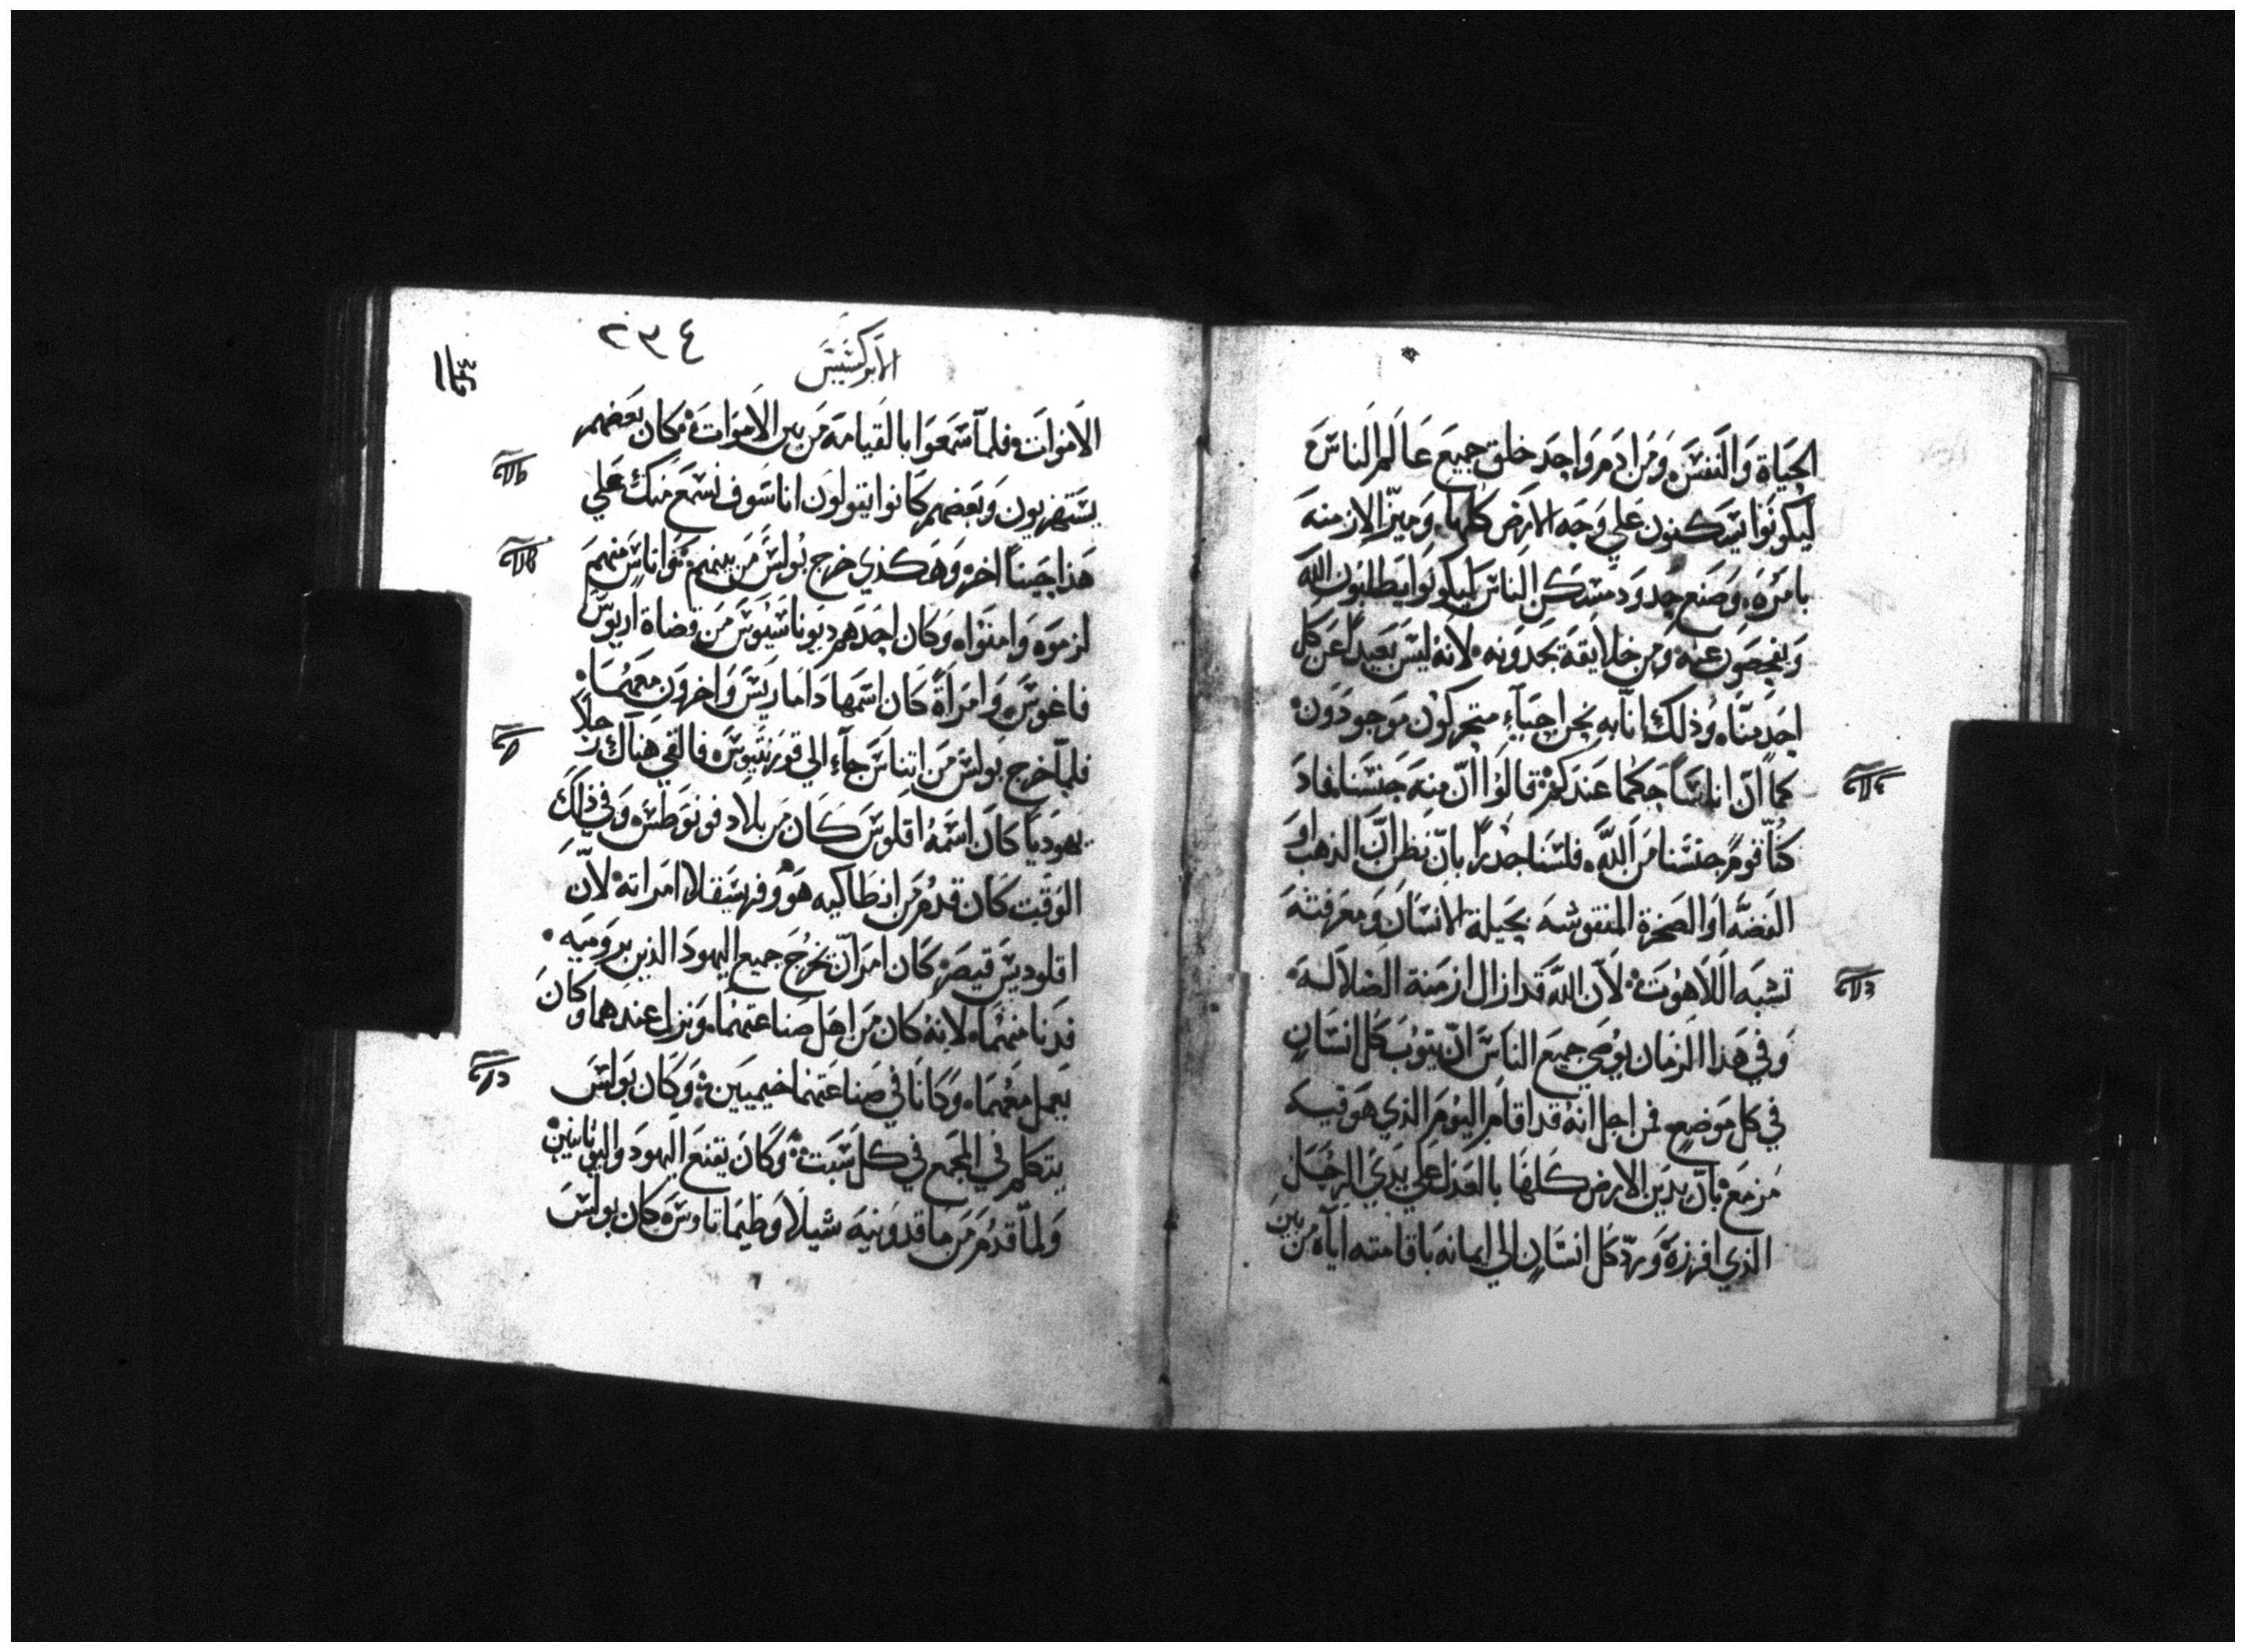 الحَيَاة وَالنفسَ ومَن ادَم وَاحِد خلق جميعَ عَالم الناسَ
ليكونوَا يسَكنون علي وَجه الارَض كلها، وَميزّ الازمنه
بامَره، وَصَنع حدوَد مسَكن الناسَ ليكونوَا يطلبون اللّه
وَيفحصَون عنه، وَمن خلايقة يجدَونه، لانهُ ليسَ بَعيدًا عَن كل
احدٍ منّا، وذلك انا به نحن احيَآء متحركون موَجودَون
كما انّ اناسًا حكما عندَكم قالوا انّ منه جنسَنا، فاد
كنّا قومًا جنسَنا منَ اللّه، فلسَنا جدرًا بانّ نظن انّ الذهب اوَ
الفضّه اوَ الصَخرة المنقوشه بحيلة الانسَان وَمعرفته
تشبه اللاهوت، لانّ اللّه قد ازال ازمنة الضلالة
وَفي هَذا الزمان يوصي جميعَ الناسَ انّ يتوب كل انسَانٍ
في كل موَضعٍ، من اجل انهُ قد اقام اليوم الذي هو فيه
مزمعٌ بانّ يدَين الارض كلها بالعَدل علي يَدَي الرجَل
الذي افرزهُ وَردّ كل انسَانٍ الي ايمانه باقامته اياه من بين
٢٣٤
الابركسَيسَ
الاموَات، فلمّا سَمعَوا بالقيامة مَن بين الاموَات، فكان بعَضهم
يسَتهزيون وَبعَضهم كانوا يقولون انا سَوف نسَمعَ منك علي
هَذا حينًا اخرَ، وَهَكذي خرج بُولسَ مَن بينهم، وَاناسٌ منهم
لزموَه وَامنوَا، وَكان احدَهم ديوناسَيوسَ مَن قضاة اريوسَ
فاغوسَ، وَامَراةً كان اسَمها دَامَاريسَ وَاخرون معَهُمَا،
فلمّا خرج بَولسَ مَن اتيناسَ جآء الي قورنثيوسَ، فالفي هنآك رجلًا
يهَودَيًا كان اسَمهُ اقلوسَ كان من بلاد فونوَطسَ، وَفي ذلك
الوَقت كان قدمُ من انطَاكيه هوَ وفرسَيقلا امَراته، لانّ
اقلوديسَ قيصَر كان امَر انّ يخرُج جميع اليهودَ الذين برومَيه
فدَنا منهُما، لانهُ كان مَن اهَل صَناعتهُما، وَنزل عندهما وكانَ
يَعمل معَهُمَا، وَكانا في صَناعَتهما خيميينَ، وَكان بَولسَ
يتكلم في المجمع في كل سَبت، وَكانَ يقنع اليهودَ واليونانيين
وَلمّا قدُم مَن مَاقدونيه شيلا وَطيماتاوسَ كان بولسَ